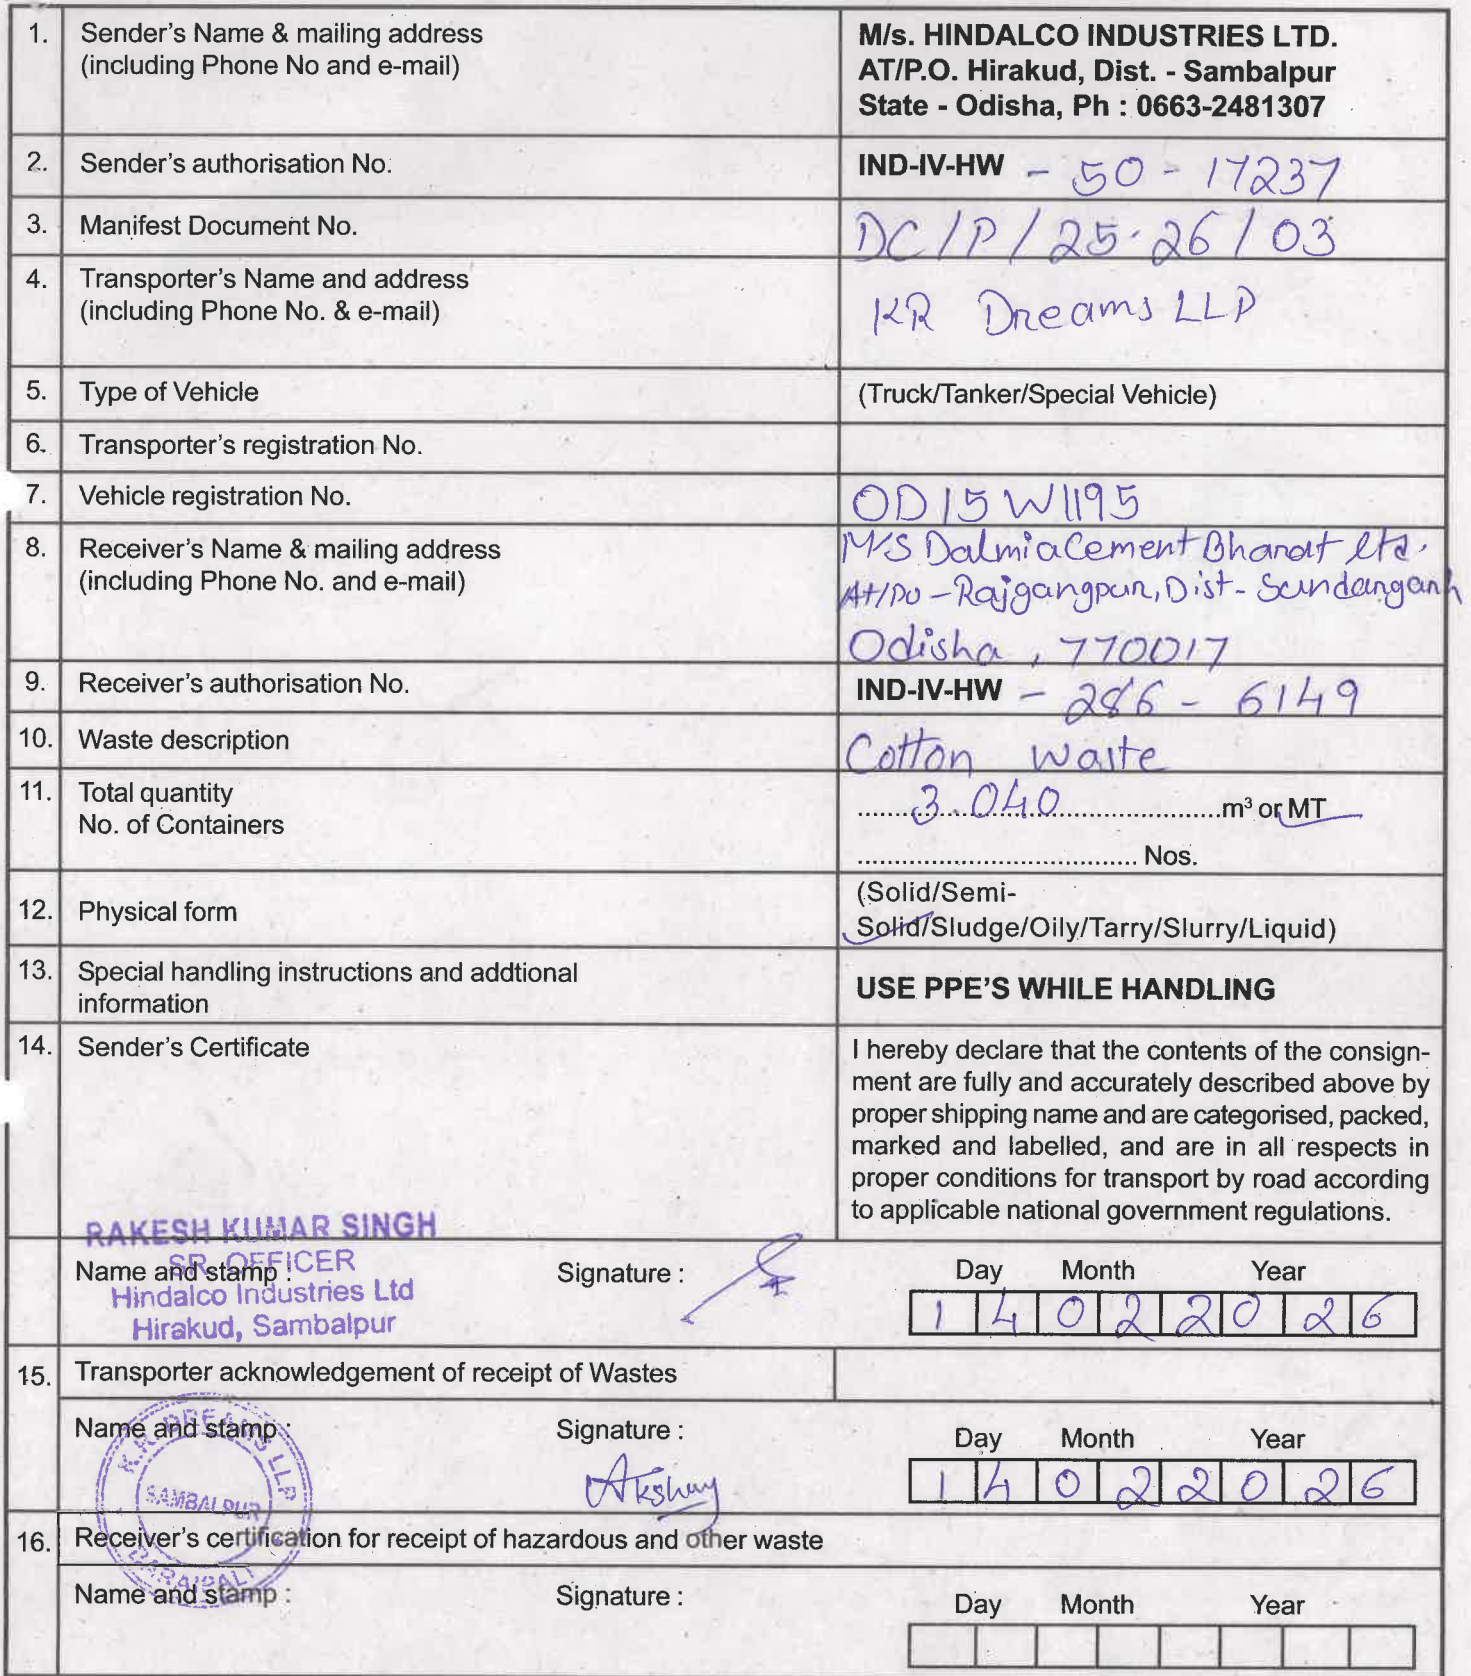 1. Sender's Name & mailing address
(including Phone No and e-mail)
M/s. HINDALCO INDUSTRIES LTD.
AT/P.O. Hirakud, Dist. - Sambalpur
State - Odisha, Ph : 0663-2481307
2. Sender's authorisation No.
IND-IV-HW - 50 - 17237
3. Manifest Document No.
DC/P/25-26/03
4. Transporter's Name and address
(including Phone No. & e-mail)
KR Dreams LLP
5. Type of Vehicle
(Truck/Tanker/Special Vehicle)
6. Transporter's registration No.
7. Vehicle registration No.
OD15W1195
8. Receiver's Name & mailing address
(including Phone No. and e-mail)
M/S Dalmia Cement Bharat Ltd.
At/Po - Rajgangpur, Dist - Sundargarh
Odisha, 770017
9. Receiver's authorisation No.
IND-IV-HW - 286 - 6149
10. Waste description
Cotton Waste
11. Total quantity
No. of Containers
3.040 m³ or MT
Nos.
12. Physical form
(Solid/Semi-
Solid/Sludge/Oily/Tarry/Slurry/Liquid)
13. Special handling instructions and addtional
information
USE PPE'S WHILE HANDLING
14. Sender's Certificate
I hereby declare that the contents of the consign-
ment are fully and accurately described above by
proper shipping name and are categorised, packed,
marked and labelled, and are in all respects in
proper conditions for transport by road according
to applicable national government regulations.
RAKESH KUMAR SINGH
SR. OFFICER
Hindalco Industries Ltd
Hirakud, Sambalpur
Name and stamp :
Signature :
Day Month Year
1 4 0 2 2 0 2 6
15. Transporter acknowledgement of receipt of Wastes
Name and stamp :
K.R. DREAMS LLP
SAMBALPUR
BARAIPALI
Signature :
Akshay
Day Month Year
1 4 0 2 2 0 2 6
16. Receiver's certification for receipt of hazardous and other waste
Name and stamp :
Signature :
Day Month Year